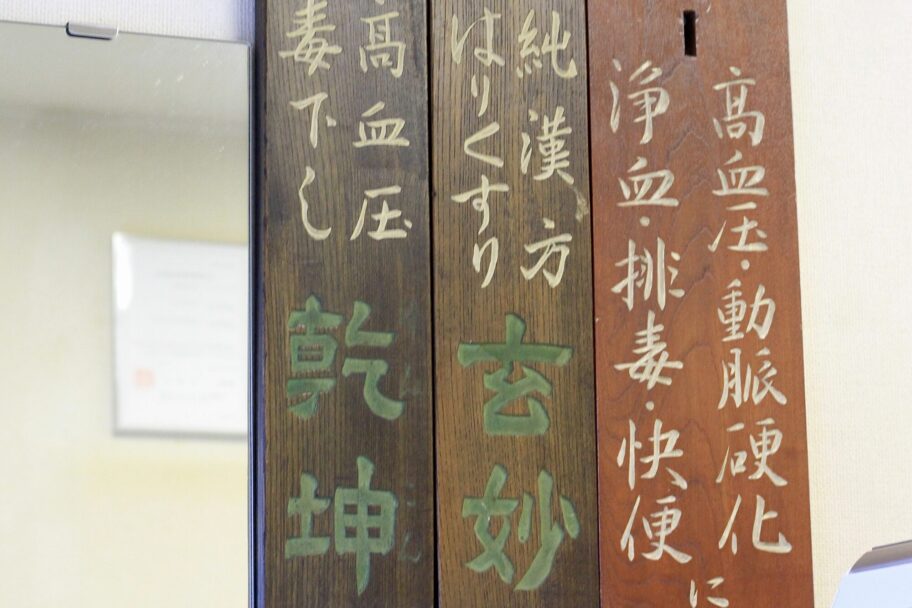 高血圧・動脈硬化
浄血・排毒・快便
に
純漢方
はりくすり
玄妙
高血圧
毒下し
乾坤